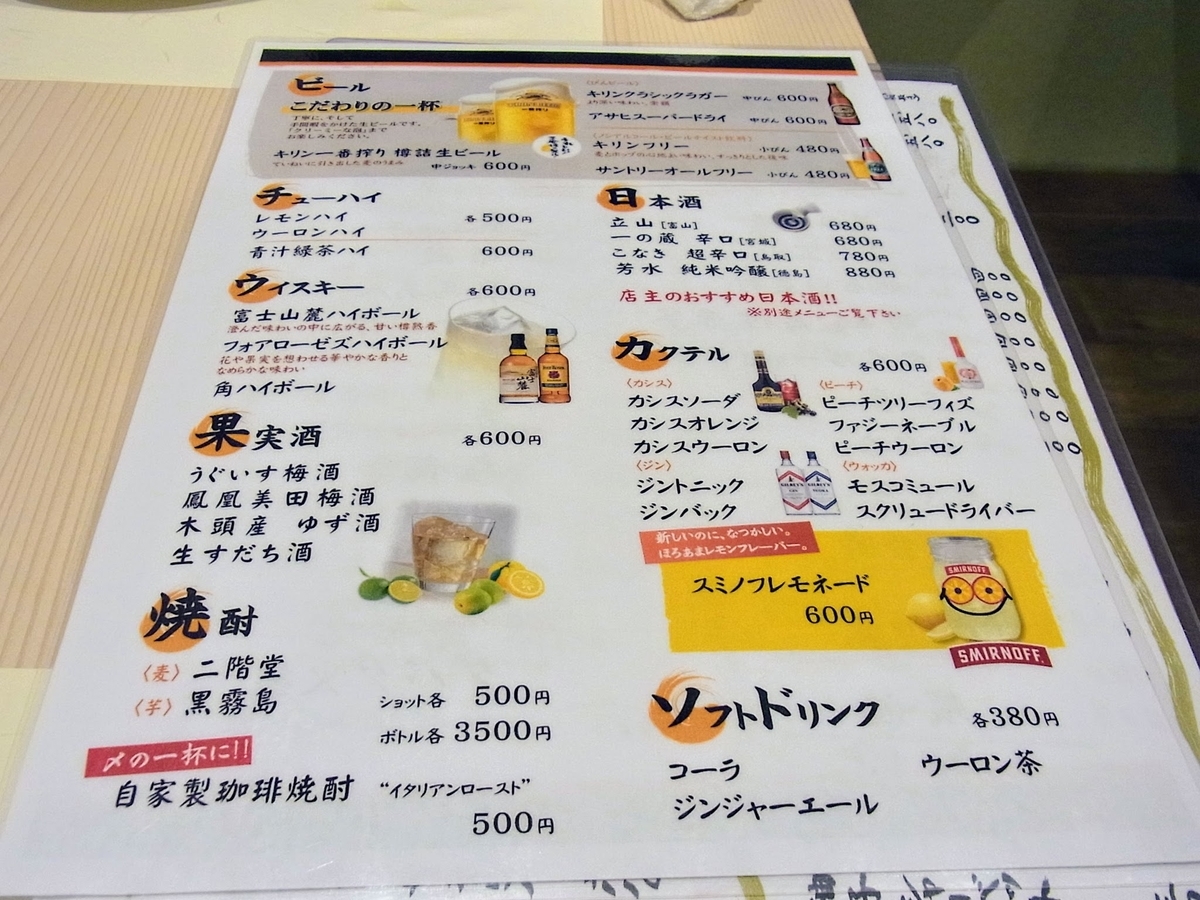 ビール
こだわりの一杯
丁寧に、そして
手間暇をかけた生ビールです。
「クリーミーな泡」まで
お楽しみください。
キリン一番搾り 樽詰生ビール
ていねいに引き出した麦のうまみ
中ジョッキ 600円
〈びんビール〉
キリンクラシックラガー 中びん 600円
アサヒスーパードライ 中びん 600円
〈ノンアルコール・ビールテイスト飲料〉
キリンフリー 小びん 480円
サントリーオールフリー 小びん 480円
チューハイ
レモンハイ 各500円
ウーロンハイ
青汁緑茶ハイ 600円
ウィスキー 各600円
富士山麓ハイボール
澄んだ味わいの中に広がる、甘い樽熟香
フォアローゼズハイボール
花や果実を想わせる華やかな香りと
なめらかな味わい
角ハイボール
果実酒 各600円
うぐいす梅酒
鳳凰美田梅酒
木頭産 ゆず酒
生すだち酒
焼酎
〈麦〉二階堂
〈芋〉黒霧島
ショット各 500円
ボトル各 3500円
〆の一杯に!!
自家製珈琲焼酎 “イタリアンロースト”
500円
日本酒
立山[富山] 680円
一の蔵 辛口[宮城] 680円
こなき 超辛口[鳥取] 780円
芳水 純米吟醸[徳島] 880円
店主のおすすめ日本酒!!
※別途メニューご覧下さい
カクテル 各600円
〈カシス〉
カシスソーダ
カシスオレンジ
カシスウーロン
〈ピーチ〉
ピーチツリーフィズ
ファジーネーブル
ピーチウーロン
〈ジン〉
ジントニック
ジンバック
〈ウォッカ〉
モスコミュール
スクリュードライバー
新しいのに、なつかしい。
ほろあまレモンフレーバー。
スミノフレモネード
600円
SMIRNOFF
SMIRNOFF
ソフトドリンク 各380円
コーラ
ウーロン茶
ジンジャーエール